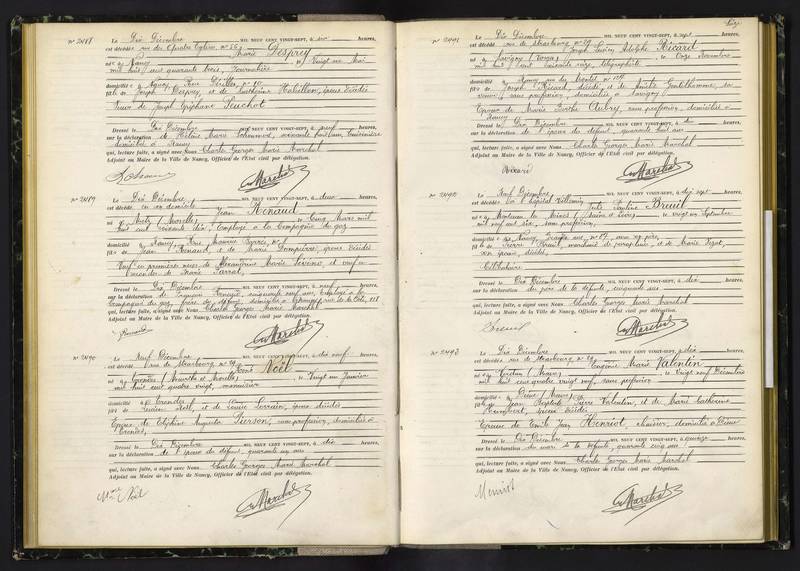 N° 2488
Le Dix Décembre MIL NEUF CENT VINGT-SEPT, à six heures,
est décédée rue des Quatre Eglises, n° 56, Marie Desprey
née à Nancy le Vingt six Mai
mil huit cent quarante trois, Journalière
domiciliée à Nancy, Rue
fille de Joseph Desprey et de Catherine Habillon, époux décédés
Veuve de Joseph Epiphane Peuchot
Dressé le Dix Décembre MIL NEUF CENT VINGT-SEPT, à neuf heures,
sur la déclaration de Hélène Marie
domiciliée à Nancy
qui, lecture faite, a signé avec Nous Charles Georges Marie Marchal
Adjoint au Maire de la Ville de Nancy, Officier de l'Etat civil par délégation.
N° 2489
Le Dix Décembre MIL NEUF CENT VINGT-SEPT, à deux heures,
est décédé en son domicile Jean Renaud
né à Metz (Moselle) le Cinq Mars mil
huit cent soixante dix, Employé à la Compagnie du gaz
domicilié à Nancy, Rue Maurice Barrès, n°
fils de Jean Renaud, et de Marie Dompierre, époux décédés
Veuf en premières noces de Alexandrine Marie et veuf en
secondes de Marie
Dressé le Dix Décembre MIL NEUF CENT VINGT-SEPT, à neuf heures,
sur la déclaration de François Renaud, cinquante neuf ans, Employé à la
Compagnie du gaz, frère du défunt, domicilié à
qui, lecture faite, a signé avec Nous Charles Georges Marie Marchal
Adjoint au Maire de la Ville de Nancy, Officier de l'Etat civil par délégation.
Renaud
N° 2490
Le Neuf Décembre MIL NEUF CENT VINGT-SEPT, à dix neuf heures,
est décédé rue de Strasbourg, n° 29 René Noël
né à Crantenoy (Meurthe et Moselle) le Vingt un Janvier
mil huit cent quatre vingt,
domicilié à
fils de Lucien Noël, et de Louise Lorrain, époux décédés
Epoux de Augusta Pierson, sans profession, domiciliée à
Dressé le Dix Décembre MIL NEUF CENT VINGT-SEPT, à dix heures,
sur la déclaration de l'épouse du défunt, quarante un ans
qui, lecture faite, a signé avec Nous Charles Georges Marie Marchal
Adjoint au Maire de la Ville de Nancy, Officier de l'Etat civil par délégation.
Mme Noël
N° 2491
Le Dix Décembre MIL NEUF CENT VINGT-SEPT, à sept heures,
est décédé rue de Strasbourg n° 29 Joseph Lucien Adolphe Ricard
né à Savigny (Vosges) le Onze Novembre
mil huit cent soixante seize, télégraphiste
domicilié à Nancy
fils de Joseph Ricard, décédé, et de Amélie Gentilhomme, sa
veuve, sans profession, domiciliée à Savigny
Epoux de Marie Berthe Aubry, sans profession, domiciliée à
Nancy
Dressé le Dix Décembre MIL NEUF CENT VINGT-SEPT, à dix heures,
sur la déclaration de l'épouse du défunt, quarante huit ans
qui, lecture faite, a signé avec Nous Charles Georges Marie Marchal
Adjoint au Maire de la Ville de Nancy, Officier de l'Etat civil par délégation.
Ricard
N° 2492
Le Neuf Décembre MIL NEUF CENT VINGT-SEPT, à dix sept heures,
est décédée à l'hôpital Villemin, Pauline Breuil
née à Montceau les Mines (Saône et Loire) le Vingt un Septembre
mil neuf cent six, sans profession,
domiciliée à Nancy, chez son père,
fille de Pierre Breuil, marchand de porcelaine, et de Marie
son épouse, décédée,
Célibataire
Dressé le Dix Décembre MIL NEUF CENT VINGT-SEPT, à dix heures,
sur la déclaration du père de la défunte, cinquante six ans
qui, lecture faite, a signé avec Nous Charles Georges Marie Marchal
Adjoint au Maire de la Ville de Nancy, Officier de l'Etat civil par délégation.
Breuil
N° 2493
Le Dix Décembre MIL NEUF CENT VINGT-SEPT, à dix heures,
est décédée rue de Strasbourg n° 29, Eugénie Marie Valentin
née à (Meuse) le Vingt neuf Décembre
mil huit cent quatre vingt neuf, sans profession,
domiciliée à (Meuse)
fille de Jean Baptiste Pierre Valentin, et de Marie Catherine
Humbert, époux décédés
Epouse de Emile Jean Henriot, domicilié à
Dressé le Dix Décembre MIL NEUF CENT VINGT-SEPT, à quinze heures,
sur la déclaration du mari de la défunte, quarante cinq ans
qui, lecture faite, a signé avec Nous Charles Georges Marie Marchal
Adjoint au Maire de la Ville de Nancy, Officier de l'Etat civil par délégation.
Henriot